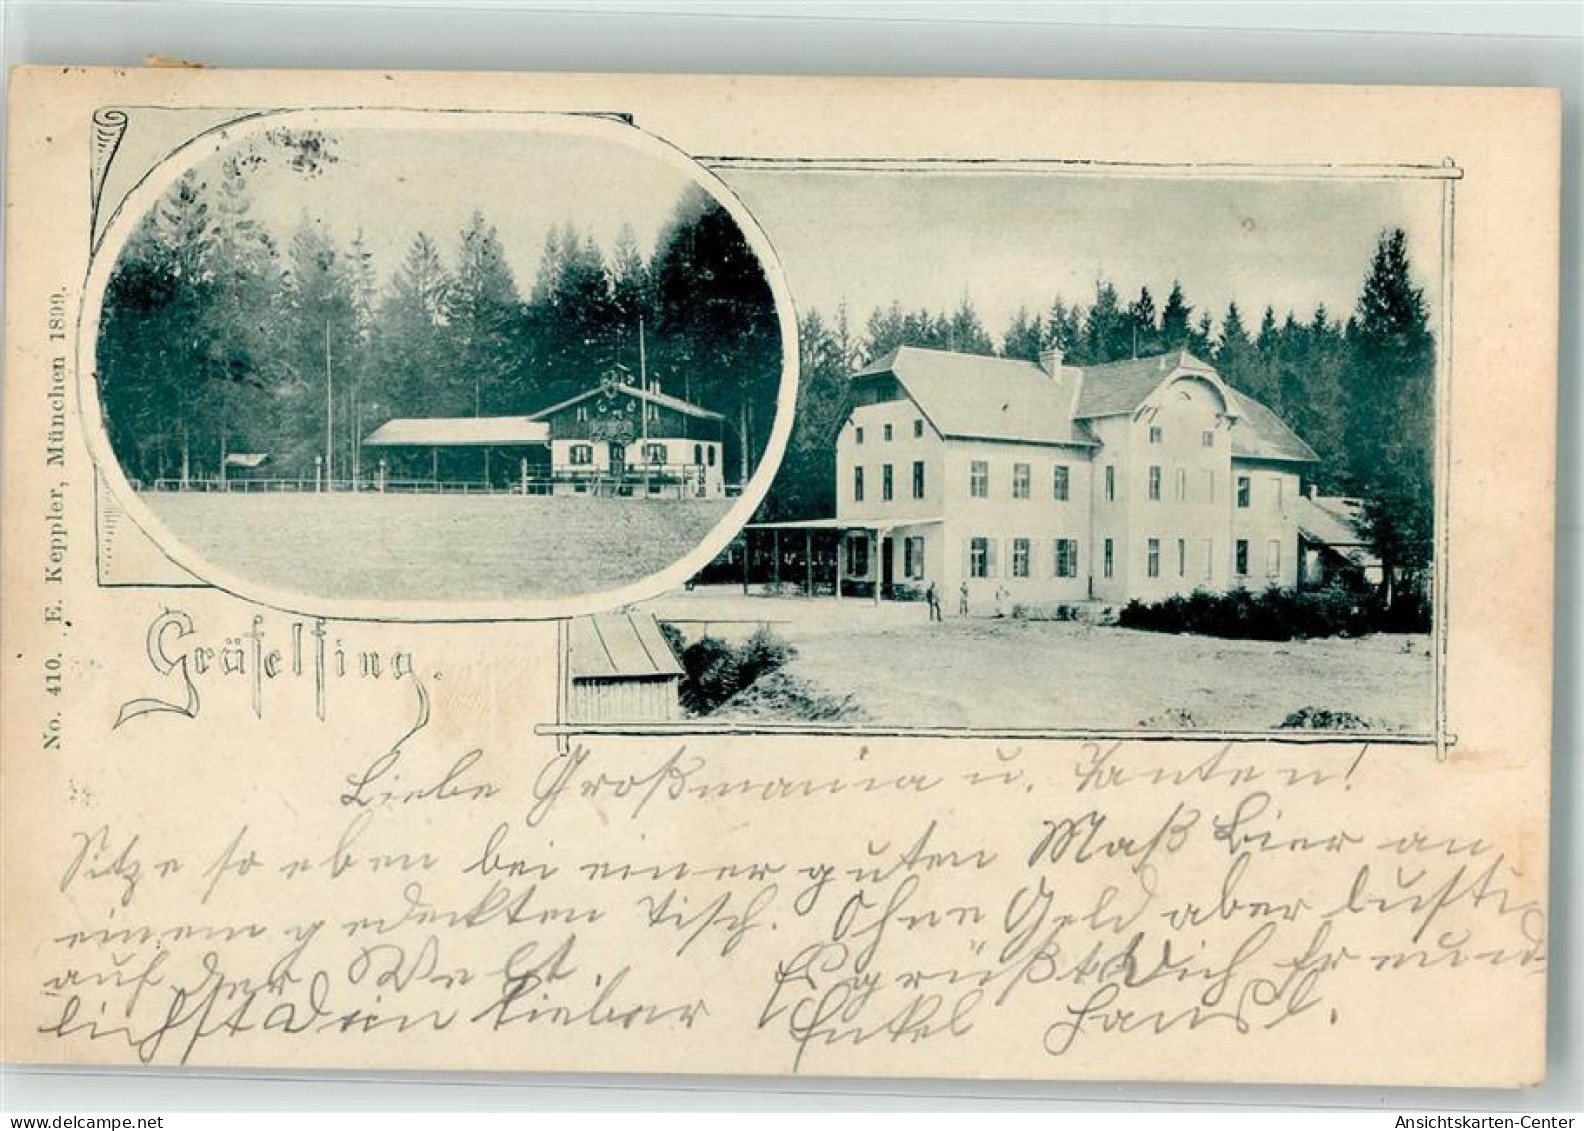 No. 410. E. Keppler, München 1899.
Gräfelfing.
Liebe Großmama u. Tanten!
Sitze so eben bei einer guten Maß Bier an
einem gedeckten Tisch. Ohne Geld aber lustig
auf der Welt. Es grüßt Dich freund-
lichst Dein lieber Enkel Hansl.
Ansichtskarten-Center